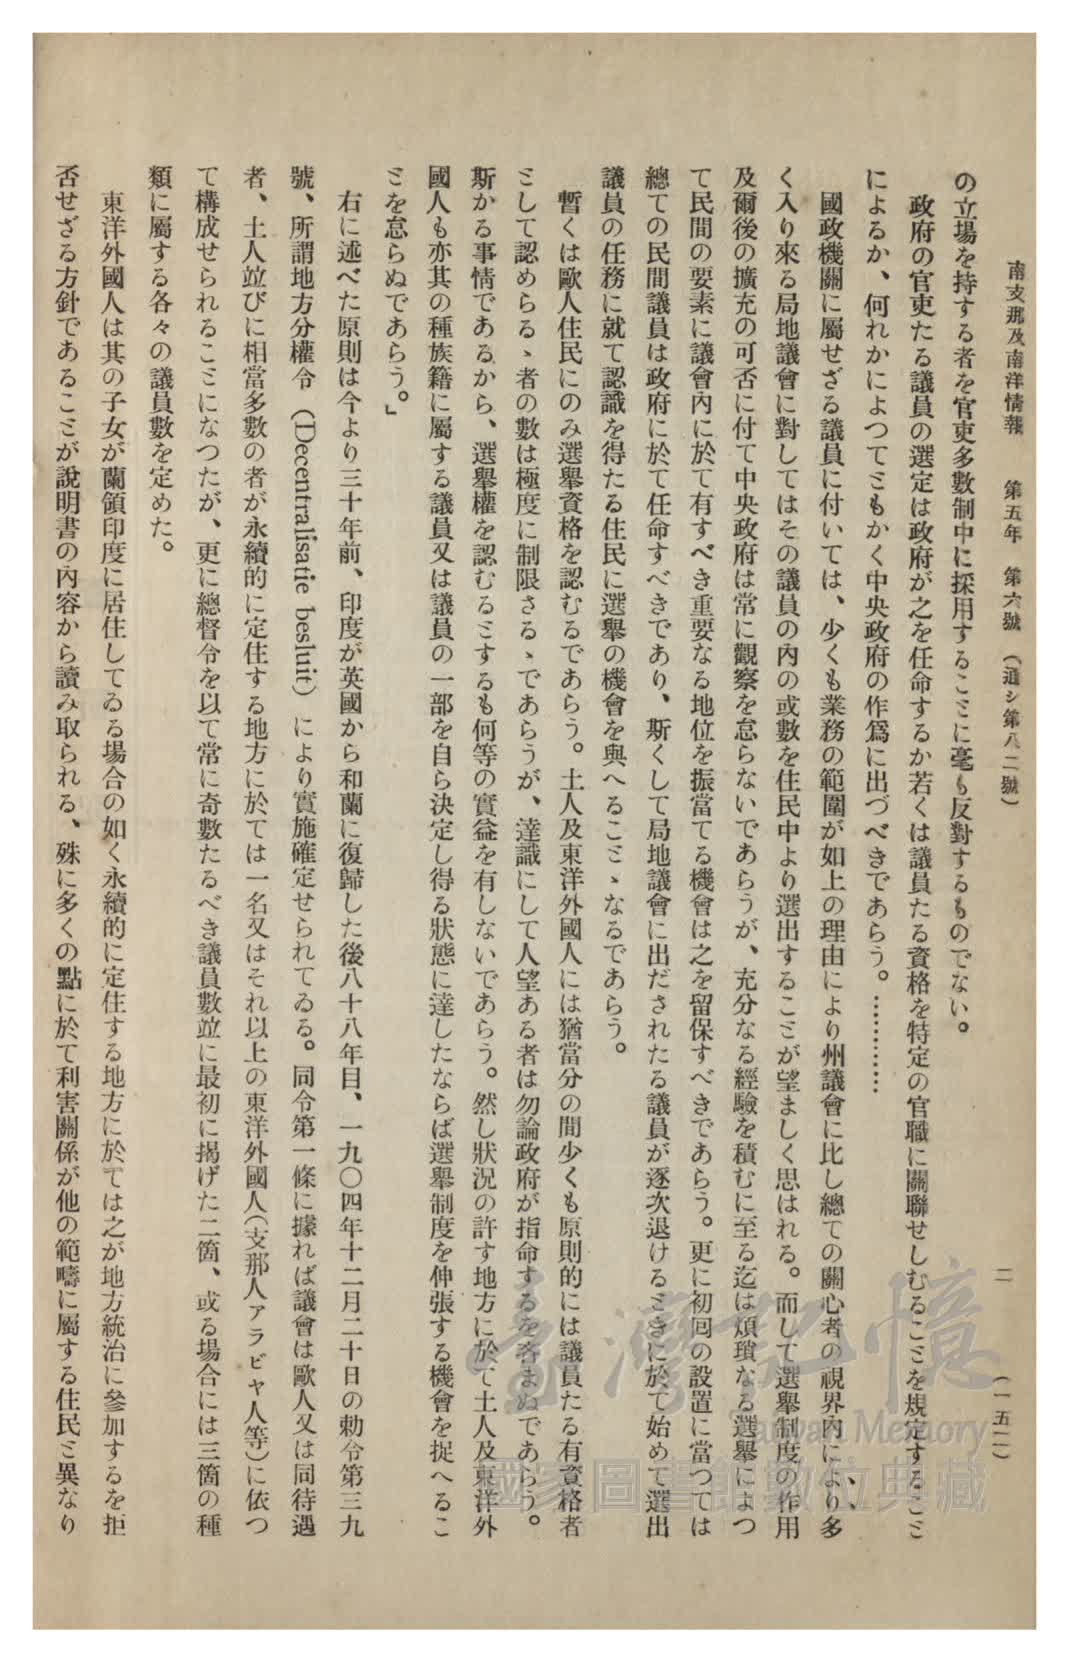 南支那及南洋情報　第五年　第六號　（通シ第八二號）　二　（一五二）
の立場を持する者を官吏多數制中に採用することに毫も反對するものでない。
政府の官吏たる議員の選定は政府が之を任命するか若くは議員たる資格を特定の官職に關聯せしむることを規定すること
によるか、何れかによつてともかく中央政府の作爲に出づべきであらう。…………
國政機關に屬せざる議員に付いては、少くも業務の範圍が如上の理由により州議會に比し總ての關心者の視界內により多
く入り來る局地議會に對してはその議員の內の或數を住民中より選出することが望ましく思はれる。而して選擧制度の作用
及爾後の擴充の可否に付て中央政府は常に觀察を怠らないであらうが、充分なる經驗を積むに至る迄は煩瑣なる選擧によつ
て民間の要素に議會內に於て有すべき重要なる地位を振當てる機會は之を留保すべきであらう。更に初回の設置に當つては
總ての民間議員は政府に於て任命すべきであり、斯くして局地議會に出だされたる議員が逐次退けるときに於て始めて選出
議員の任務に就て認識を得たる住民に選擧の機會を與へることゝなるであらう。
暫くは歐人住民にのみ選擧資格を認むるであらう。土人及東洋外國人には猶當分の間少くも原則的には議員たる有資格者
として認めらるゝ者の數は極度に制限さるゝであらうが、達識にして人望ある者は勿論政府が指命するを吝まぬであらう。
斯かる事情であるから、選擧權を認むるとするも何等の實益を有しないであらう。然し狀況の許す地方に於て土人及東洋外
國人も亦其の種族籍に屬する議員又は議員の一部を自ら決定し得る狀態に達したならば選擧制度を伸張する機會を捉へるこ
とを怠らぬであらう。」
右に述べた原則は今より三十年前、印度が英國から和蘭に復歸した後八十八年目、一九〇四年十二月二十日の勅令第三九
號、所謂地方分權令（Decentralisatie besluit）により實施確定せられてゐる。同令第一條に據れば議會は歐人又は同待遇
者、土人竝びに相當多數の者が永續的に定住する地方に於ては一名又はそれ以上の東洋外國人（支那人アラビヤ人等）に依つ
て構成せられることになつたが、更に總督令を以て常に奇數たるべき議員數竝に最初に揭げた二箇、或る場合には三箇の種
類に屬する各々の議員數を定めた。
東洋外國人は其の子女が蘭領印度に居住してゐる場合の如く永續的に定住する地方に於ては之が地方統治に參加するを拒
否せざる方針であることが說明書の內容から讀み取られる、殊に多くの點に於て利害關係が他の範疇に屬する住民と異なり
臺灣記憶
Taiwan Memory
國家圖書館數位典藏